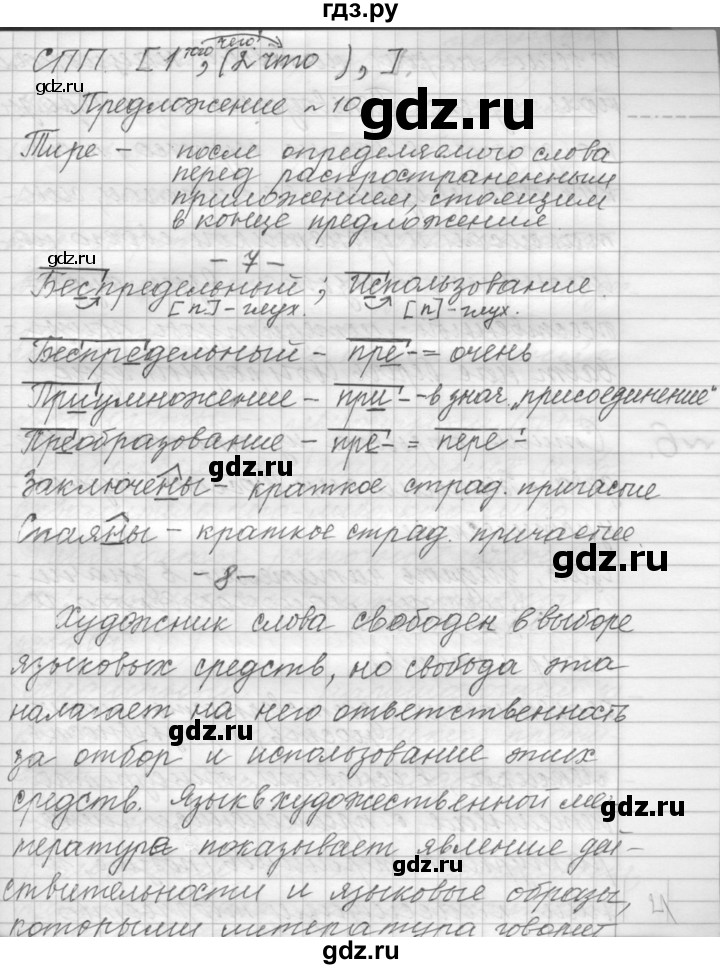 гдз.ру
СПП [1 того, чего?, (2 что ), ].
gdz.ru
Предложение № 10
gdz.ru
Тире – после определяемого слова
перед распространенным
приложением, стоящим
в конце предложения.
gdz.ru
– 7 –
Беспредельный; Использование.
[п]-глух. [п]-глух.
Беспредельный – пре- = очень
Приумножение – при- – в знач. „присоединение"
Преобразование – пре- = пере-
gdz.ru
Заключены – краткое страд. причастие
Спаяны – краткое страд. причастие.
gdz.ru
– 8 –
Художник слова свободен в выборе
языковых средств, но свобода эта
налагает на него ответственность
gdz.ru
за отбор и использование этих
средств. Язык в художественной ли-
gdz.ru
тературе показывает явление дей-
gdz.ru
ствительности и языковые образы,
которыми литература говорит
gdz.ru